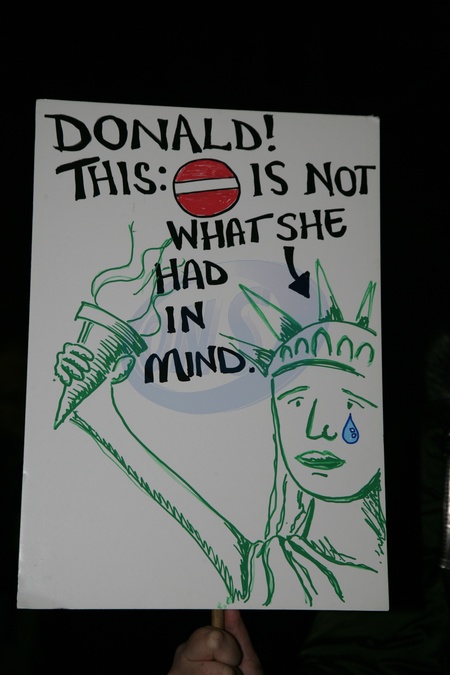 DONALD!
THIS: IS NOT
WHAT SHE
HAD
IN
MIND.